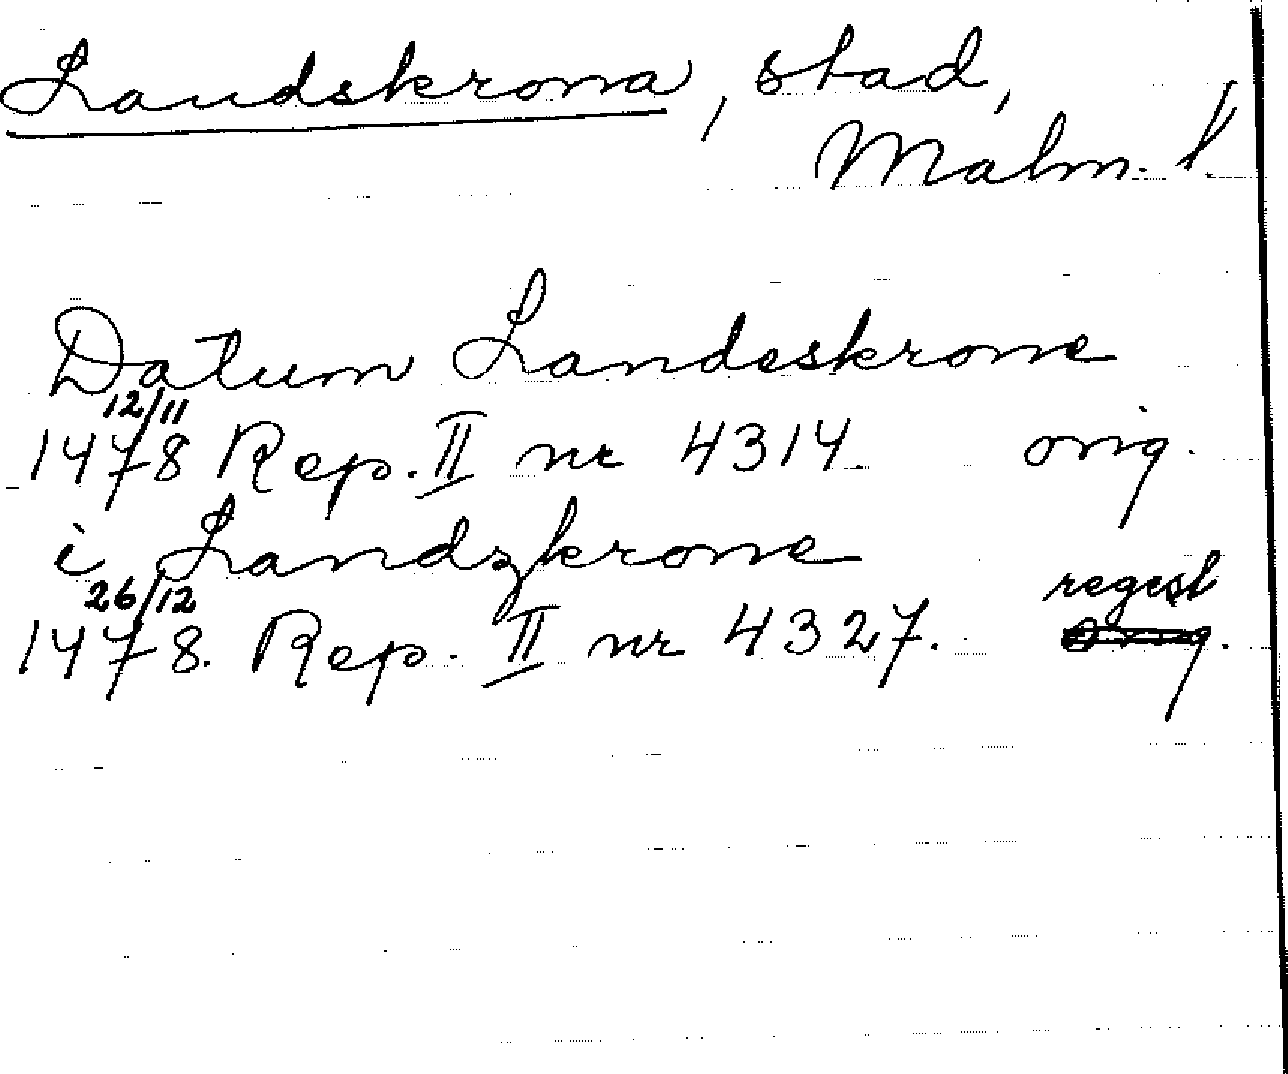 Landskrona, stad,
Malm. l.
Datum Landeskrone
12/11
1478 Rep. II nr 4314. orig.
i Landzkrone
26/12 regest
1478. Rep. II nr 4327. orig.